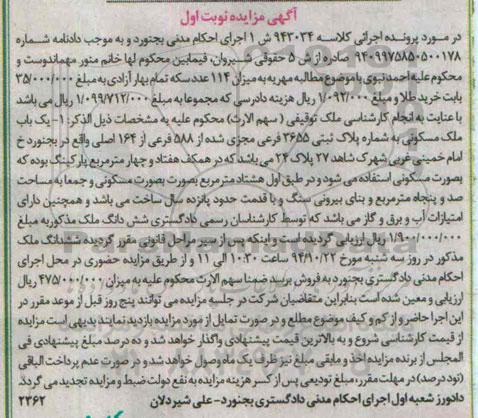 آگهی مزایده نوبت اول
در مورد پرونده اجرائی کلاسه ۹۴۳۰۳۴ ش ۱ اجرای احکام مدنی بجنورد و به موجب دادنامه شماره
۹۴۰۹۹۷۵۸۵۰۵۰۰۱۷۸ صادره از ش ۵ حقوقی شیروان، فیمابین محکوم لها خانم منور مهماندوست و
محکوم علیه احمد تبوی با موضوع مطالبه مهریه به میزان ۱۱۴ عدد سکه تمام بهار آزادی به مبلغ ۳۵/۰۰۰/۰۰۰
بابت خرید طلا و مبلغ ۱/۰۹۲/۰۰۰ ریال هزینه دادرسی که مجموعا به مبلغ ۱/۰۹۹/۷۱۲/۰۰۰ ریال می باشد
با عنایت به انجام کارشناسی ملک توقیفی ( سهم الارث) محکوم علیه به مشخصات ذیل الذکر: ۱- یک باب
ملک مسکونی به شماره پلاک ثبتی ۳۶۵۵ فرعی مجزی شده از ۵۸۸ فرعی از ۱۶۴ اصلی واقع در بجنورد خ
امام خمینی غربی شهرک شاهد ۲۷ پلاک ۲۴ می باشد که در همکف هفتاد و چهار مترمربع پارکینگ بوده که
بصورت مسکونی استفاده می شود و در طبق اول هشتاد مترمربع بصورت بصورت مسکونی و جمعا به مساحت
صد و پنجاه مترمربع و بنای بیرونی سنگ و با قدمت حدود پانزده سال ساخت می باشد و همچنین دارای
امتیازات آب و برق و گاز می باشد که توسط کارشناسان رسمی دادگستری شش دانگ ملک مذکور به مبلغ
۱/۹۰۰/۰۰۰/۰۰۰ ریال ارزیابی گردیده است و اینکه پس از سیر مراحل قانونی مقرر گردیده ششدانگ ملک
مذکور در روز سه شنبه مورخ ۹۴/۱۰/۲۲ ساعت ۱۰:۳۰ الی ۱۱ و از طریق مزایده حضوری در محل اجرای
احکام مدنی دادگستری بجنورد به فروش برسد ضمنا سهم الارث محکوم علیه به میزان ۴۷۵/۰۰۰/۰۰۰ ریال
ارزیابی و معین شده است بنابراین متقاضیان شرکت در جلسه مزایده می توانند پنج روز قبل از موعد مقرر در
این اجرا حاضر و از کم و کیف موضوع مطلع و در صورت تمایل از مورد مزایده بازدید نمایند بدیهی است مزایده
از قیمت کارشناسی شروع و به بالاترین قیمت پیشنهادی واگذار خواهد شد و ده درصد مبلغ پیشنهادی فی
المجلس از برنده مزایده اخذ و مابقی مبلغ نیز ظرف یک ماه وصول خواهد شد و در صورت عدم پرداخت الباقی
(نود درصد) در مهلت مقرر، مبلغ تودیعی پس از کسر هزینه مزایده به نفع دولت ضبط و مزایده تجدید می گردد
دادورز شعبه اول اجرای احکام مدنی دادگستری بجنورد- علی شیردلان ۲۳۶۲